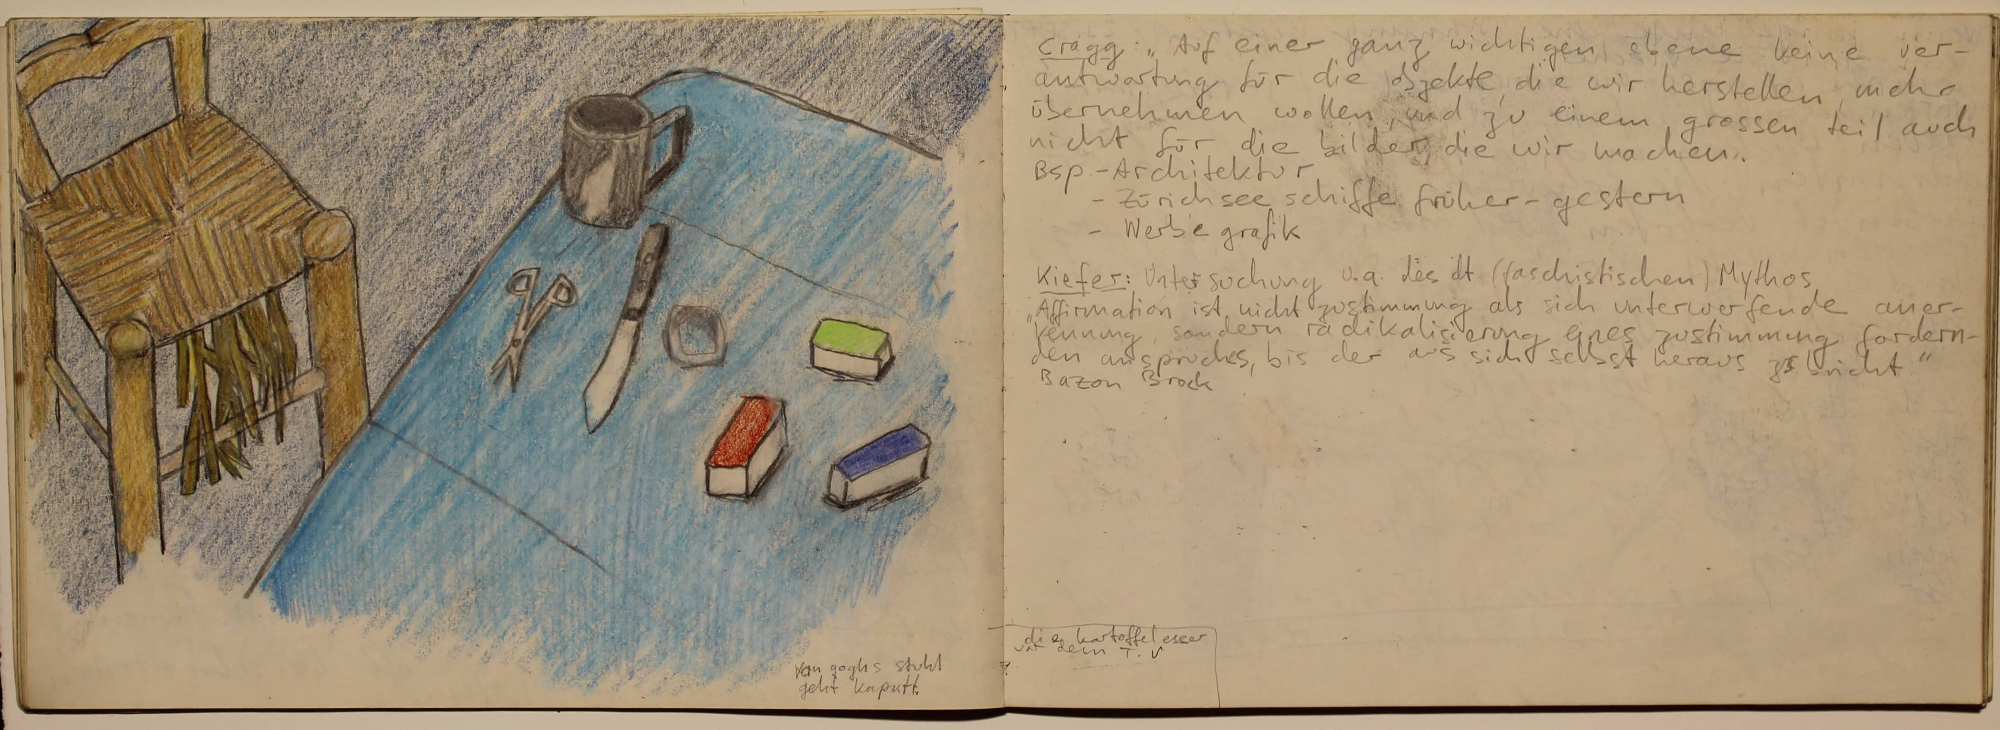 van goghs stuhl
geht kaputt.
Cragg: „Auf einer ganz wichtigen ebene keine ver-
antwortung für die objekte, die wir herstellen, mehr
übernehmen wollen, und zu einem grossen teil auch
nicht für die bilder, die wir machen.
Bsp - Architektur
- Zürichsee schiffe früher - gestern
- Werbe grafik
Kiefer: Untersuchung u.a. des dt. (faschistischen) Mythos
„Affirmation ist nicht zustimmung als sich unterwerfende aner-
kennung, sondern radikalisierung eines zustimmung fordern-
den anspruches, bis der aus sich selbst heraus bricht"
Bazon Brock
die kartoffelesser
vor dem T.V